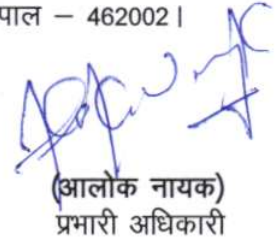 पाल – 462002।
(आलोक नायक)
प्रभारी अधिकारी